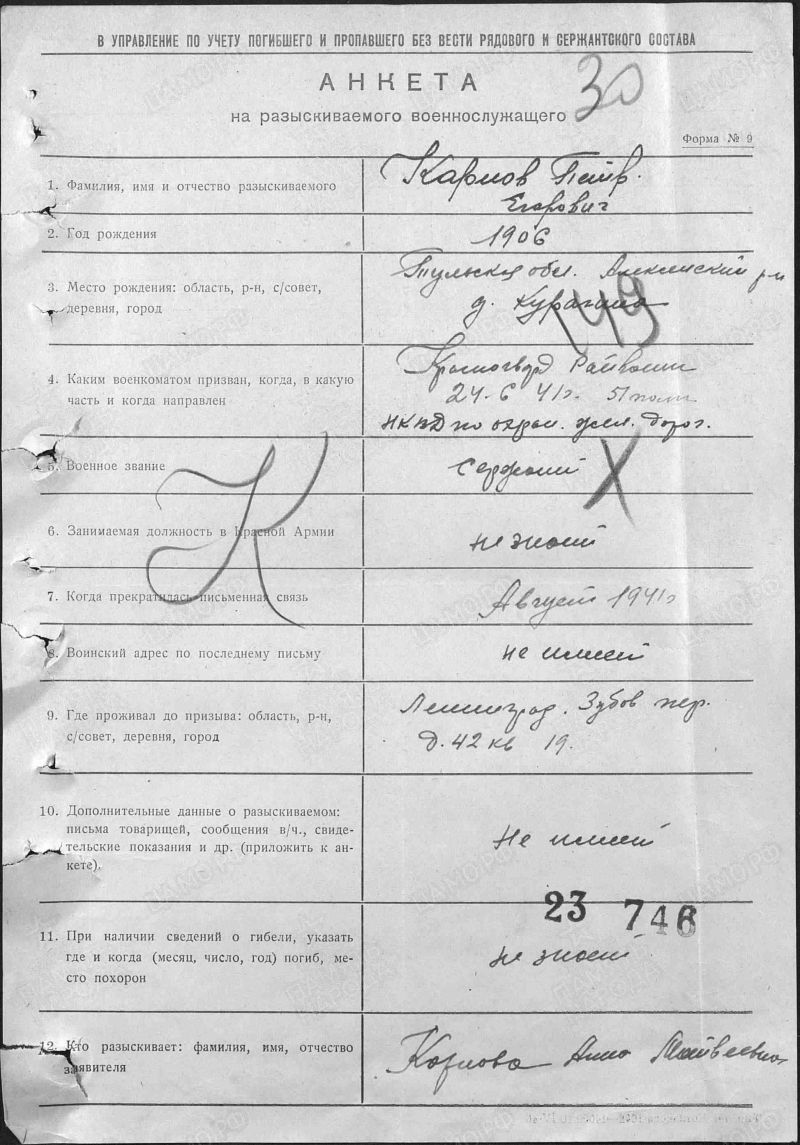 В УПРАВЛЕНИЕ ПО УЧЕТУ ПОГИБШЕГО И ПРОПАВШЕГО БЕЗ ВЕСТИ РЯДОВОГО И СЕРЖАНТСКОГО СОСТАВА
АНКЕТА
30
на разыскиваемого военнослужащего
Форма № 9
1. Фамилия, имя и отчество разыскиваемого
Карпов Петр
Егорович
2. Год рождения
1906
3. Место рождения: область, р-н, с/совет,
деревня, город
обл. р-н
д.
149
4. Каким военкоматом призван, когда, в какую
часть и когда направлен
24.6 41г. 51
НКВД по охран. жел. дорог.
5. Военное звание
Сержант
К
6. Занимаемая должность в Красной Армии
не знаем
7. Когда прекратилась письменная связь
Август 1941г
8. Воинский адрес по последнему письму
не имеем
9. Где проживал до призыва: область, р-н,
с/совет, деревня, город
Ленинград. Зубов пер.
д. 42 кв 19.
10. Дополнительные данные о разыскиваемом:
письма товарищей, сообщения в/ч., свиде-
тельские показания и др. (приложить к ан-
кете).
Не имеем
23 746
11. При наличии сведений о гибели, указать
где и когда (месяц, число, год) погиб, ме-
сто похорон
не знаем
12. Кто разыскивает: фамилия, имя, отчество
заявителя
Карпова Анна Матвеевна